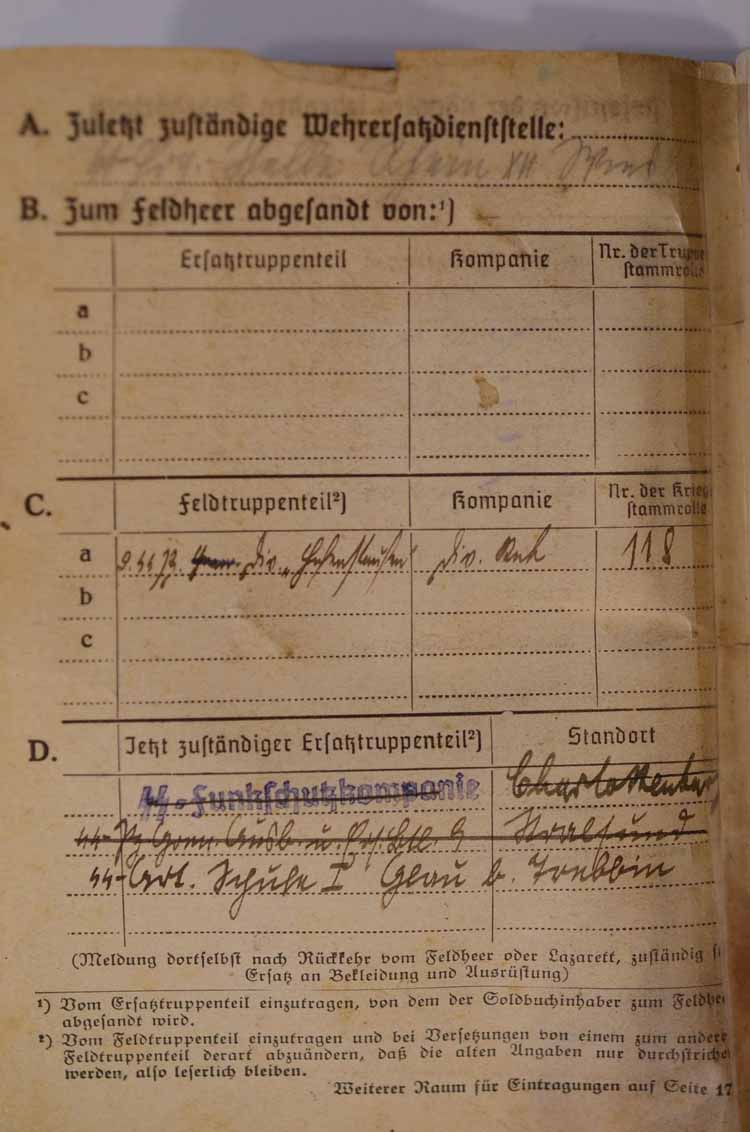 A. Zuletzt zuständige Wehrersatzdienststelle:
XII
B. Zum Feldheer abgesandt von:¹)
Ersatztruppenteil Kompanie Nr. der Truppe
stammrolle
a
b
c
C. Feldtruppenteil²) Kompanie Nr. der Krieg
stammrolle
a 9. SS Pz. Gren. Div. „Hohenstaufen" Div. 118
b
c
D. Jetzt zuständiger Ersatztruppenteil²) Standort
SS-Funkschutzkompanie
SS-Pz Gren. Ausb. u. 9 Stralsund
SS-Art. Schule I Glau b. Trebbin
(Meldung dortselbst nach Rückkehr vom Feldheer oder Lazarett, zuständig f
Ersatz an Bekleidung und Ausrüstung)
¹) Vom Ersatztruppenteil einzutragen, von dem der Soldbuchinhaber zum Feldhe
abgesandt wird.
²) Vom Feldtruppenteil einzutragen und bei Versetzungen von einem zum andere
Feldtruppenteil derart abzuändern, daß die alten Angaben nur durchstriche
werden, also leserlich bleiben.
Weiterer Raum für Eintragungen auf Seite 17